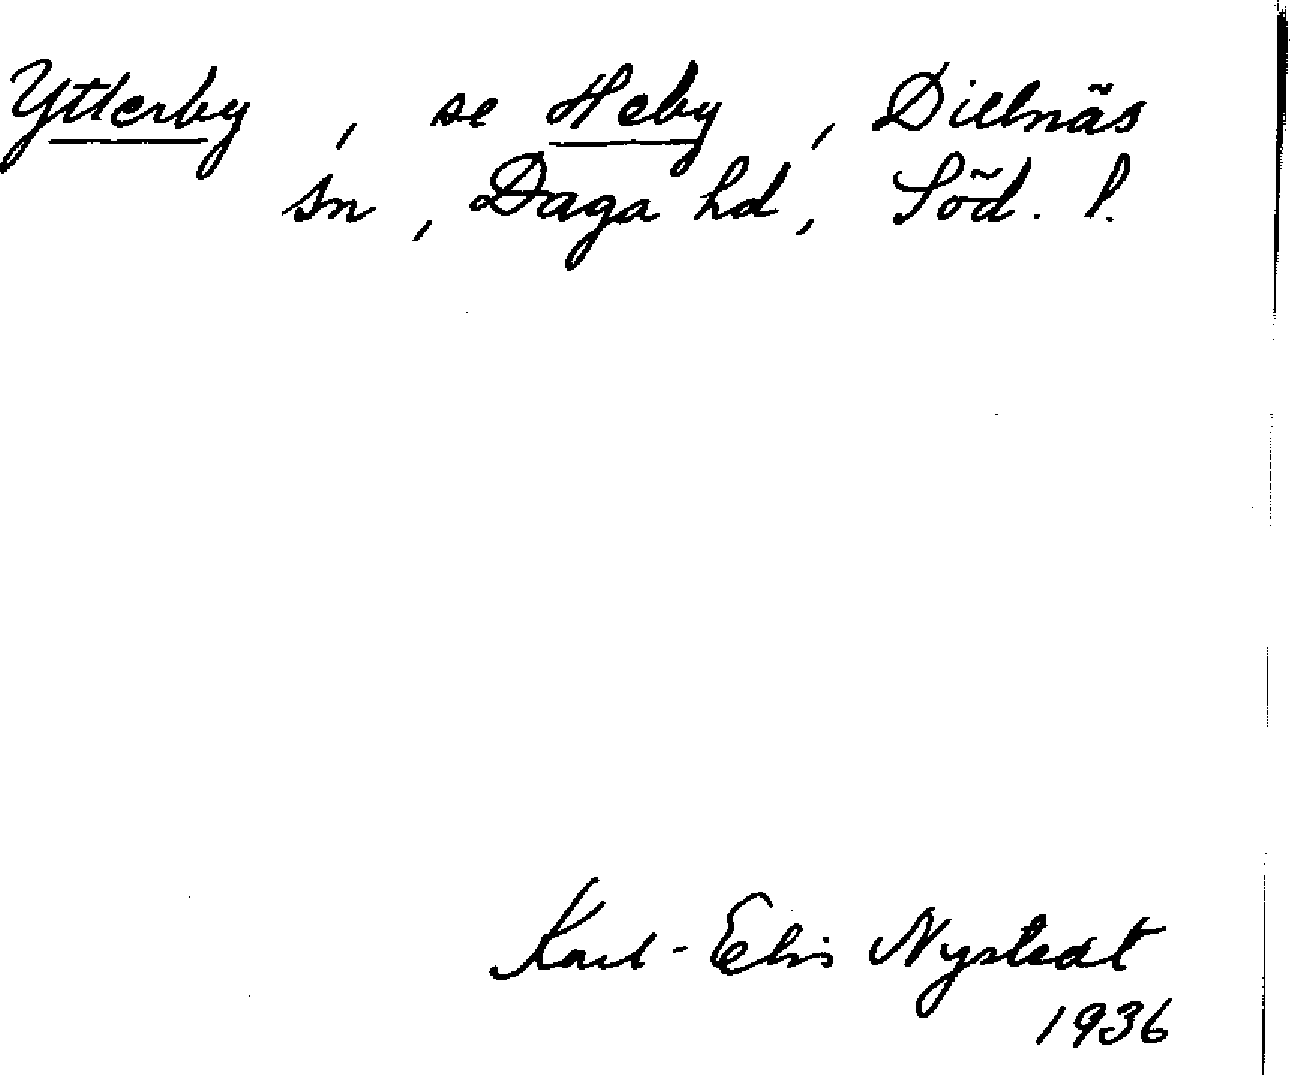 Ytterby, se Heby, Dillnäs
sn, Daga hd, Söd. l.
Karl-Elis Nystedt
1936